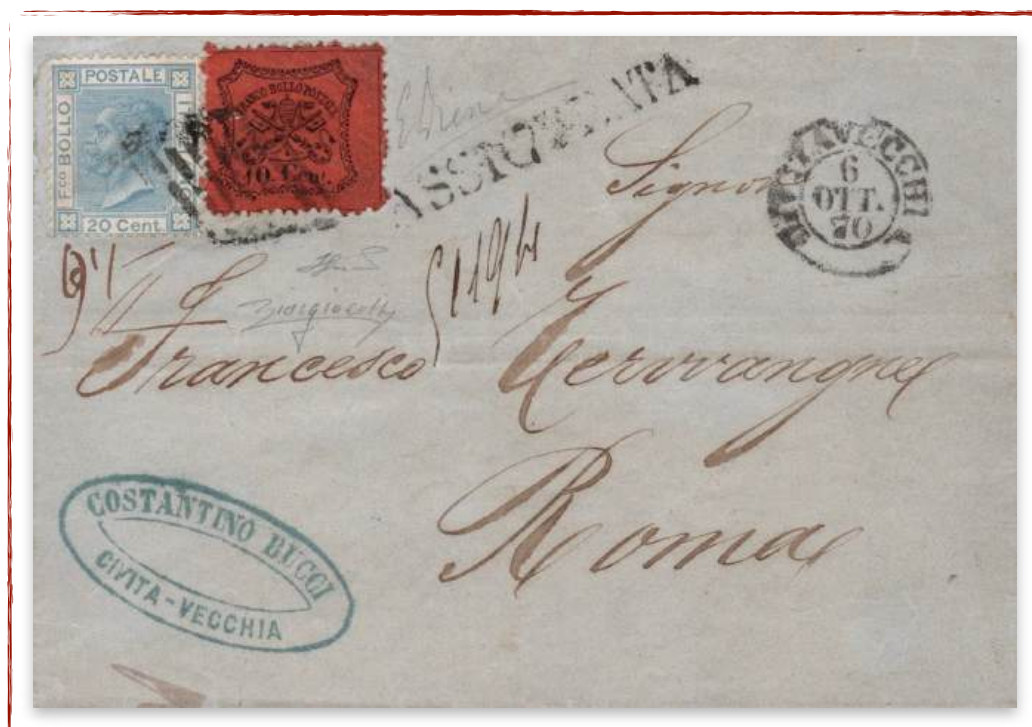 POSTALE
Fco BOLLO
20 Cent.
FRANCO BOLLO POSTALE
10 Cent.
EDiena
ASSICURATA
CIVITAVECCHIA
6
OTT.
70
Signor
Francesco
Roma
COSTANTINO BUCCI
CIVITA-VECCHIA